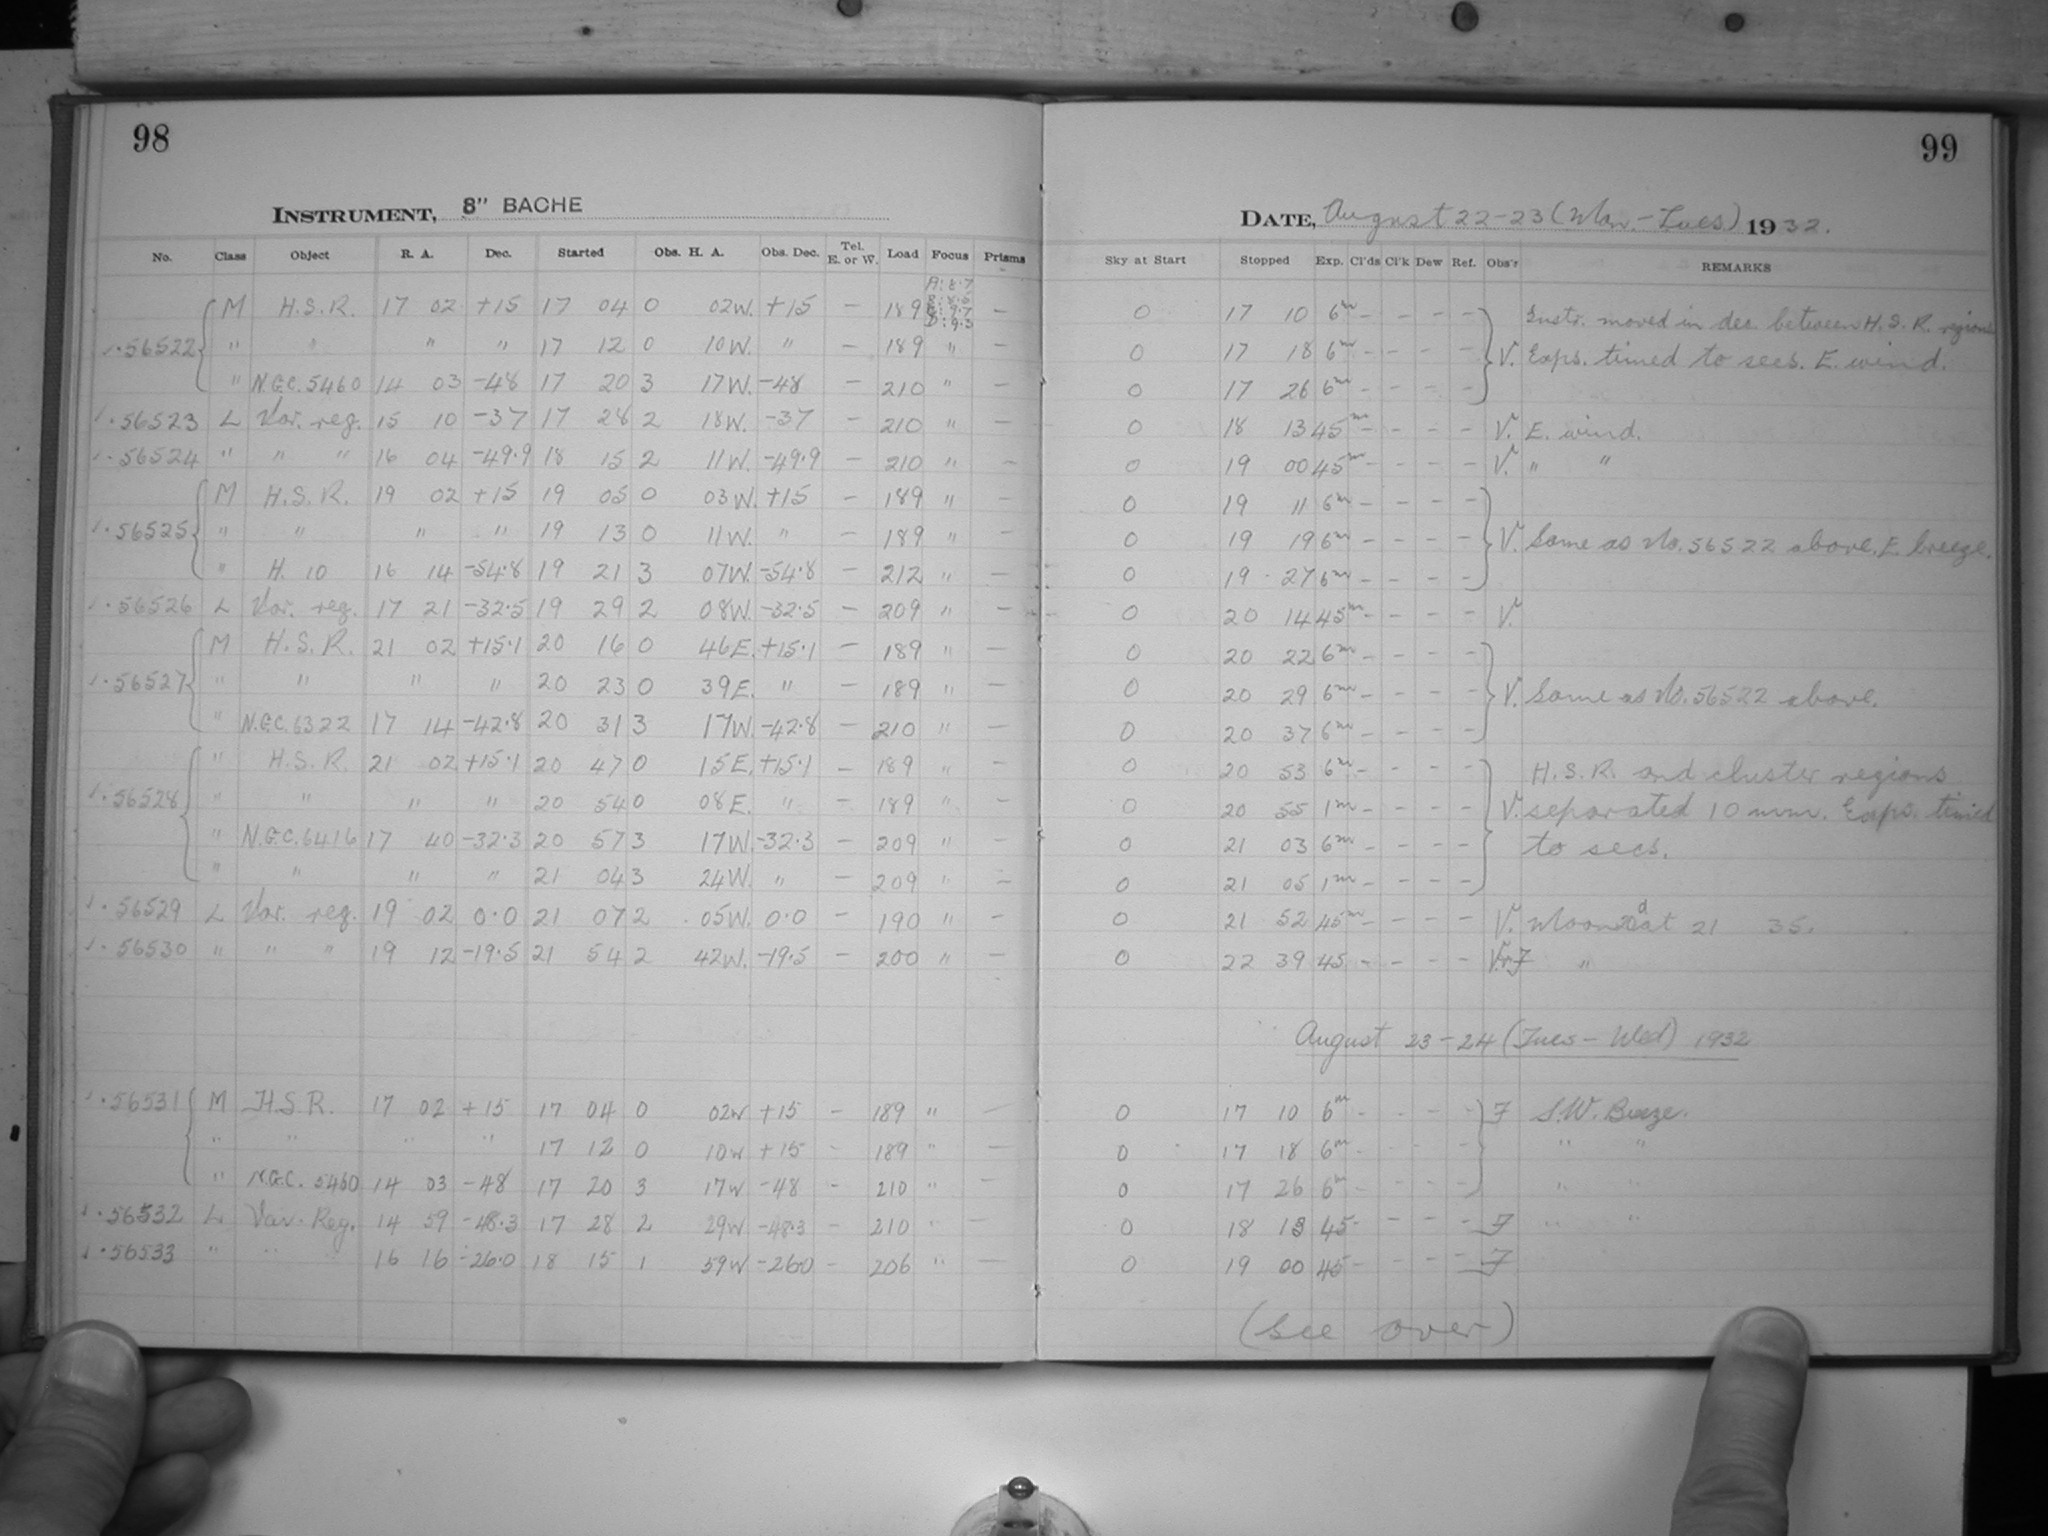 98
INSTRUMENT, 8" BACHE
No. Class Object R. A. Dec. Started Obs. H. A. Obs. Dec. Tel. E. or W. Load Focus Prisms
M H.S.R. 17 02 +15 17 04 0 02W. +15 — 189 —
56522 " " " " 17 12 0 10W. " — 189 " —
" N.G.C. 5460 14 03 -48 17 20 3 17W. -48 — 210 " —
56523 L Var. reg. 15 10 -37 17 28 2 18W. -37 — 210 " —
56524 " " " 16 04 -49.9 18 15 2 11W. -49.9 — 210 " —
M H.S.R. 19 02 +15 19 05 0 03W +15 — 189 " —
56525 " " " " 19 13 0 11W. " — 189 " —
" H. 10 16 14 -54.8 19 21 3 07W. -54.8 — 212 " —
56526 L Var. reg. 17 21 -32.5 19 29 2 08W. -32.5 — 209 " —
M H.S.R. 21 02 +15.1 20 16 0 46E. +15.1 — 189 " —
56527 " " " " 20 23 0 39E. " — 189 " —
" N.G.C. 6322 17 14 -42.8 20 31 3 17W. -42.8 — 210 " —
" H.S.R. 21 02 +15.1 20 47 0 15E. +15.1 — 189 " —
56528 " " " " 20 54 0 08E. " — 189 " —
" N.G.C. 6416 17 40 -32.3 20 57 3 17W. -32.3 — 209 " —
" " " " 21 04 3 24W. " — 209 " —
56529 L Var. reg. 19 02 0.0 21 07 2 05W. 0.0 — 190 " —
56530 " " " 19 12 -19.5 21 54 2 42W. -19.5 — 200 " —
56531 M H.S.R. 17 02 +15 17 04 0 02W +15 - 189 " —
" " " " 17 12 0 10W +15 - 189 " —
" N.G.C. 5460 14 03 -48 17 20 3 17W -48 - 210 " —
56532 L Var. Reg. 14 59 -48.3 17 28 2 29W -48.3 - 210 " —
56533 " " " 16 16 -26.0 18 15 1 59W -260 - 206 " —
99
DATE, August 22-23 (Mon.-Tues.) 1932.
Sky at Start Stopped Exp. Cl'ds Cl'k Dew Ref. Obs'r REMARKS
0 17 10 6m - - - - Instr. moved in dec. between H.S.R. regions
0 17 18 6m - - - - V. Exps. timed to secs. E. wind.
0 17 26 6m - - - -
0 18 13 45m - - - - V. E. wind.
0 19 00 45m - - - - V. " "
0 19 11 6m - - - -
0 19 19 6m - - - - V. Same as No. 56522 above. E. breeze.
0 19 27 6m - - - -
0 20 14 45m - - - - V.
0 20 22 6m - - - -
0 20 29 6m - - - - V. Same as No. 56522 above.
0 20 37 6m - - - -
0 20 53 6m - - - - H.S.R. and cluster regions
0 20 55 1m - - - - V. separated 10 mm. Exps. timed
0 21 03 6m - - - - to secs.
0 21 05 1m - - - -
0 21 52 45m - - - - V. at 21 35.
0 22 39 45 - - - - "
August 23-24 (Tues-Wed) 1932
0 17 10 6m - - - - F S.W. Breeze.
0 17 18 6m - - - - " "
0 17 26 6m - - - - " "
0 18 13 45 - - - - F " "
0 19 00 45 - - - - F
(See over)